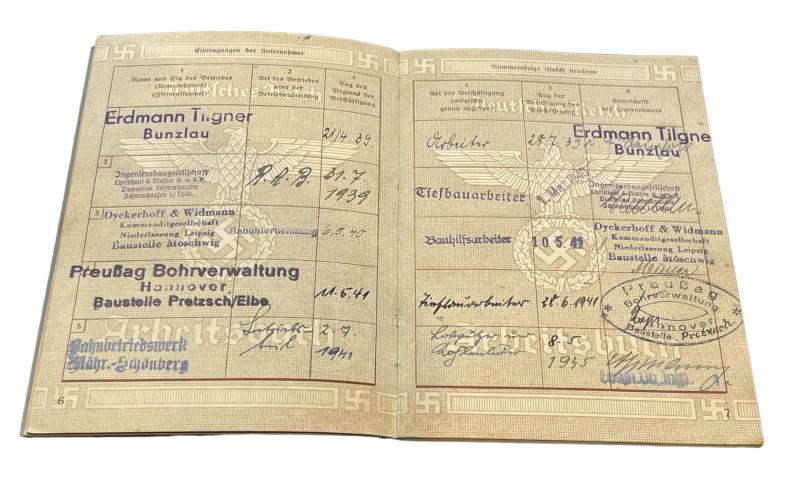 Eintragungen der Unternehmer
1
Name und Sitz des Betriebes
(Unternehmers)
(Firmenstempel)
2
Art des Betriebes
oder der
Betriebsabteilung
3
Tag des
Beginns der
Beschäftigung
Deutsches Reich
Erdmann Tilgner
Bunzlau
21/4. 39
2
Ingenieurbaugesellschaft
Christiani & Nielsen G. m. b. H.
31.7.
1939
3
Dyckerhoff & Widmann
Kommanditgesellschaft
Niederlassung Leipzig
Baustelle Moschwig
Bauunternehmung
6.5.40
Preußag Bohrverwaltung
Hannover
Baustelle Pretzsch/Elbe
11.5.41
5
Bahnbetriebswerk
Mähr.-Schönberg
Betriebs
2.7.
1941
Arbeitsbuch
6
Nummernfolge (links) beachten
4
Art der Beschäftigung
(möglichst
genau angeben)
5
Tag der
Beendigung der
Beschäftigung
6
Unterschrift
des Unternehmers
Deutsches Reich
Arbeiter
28.7.39
Erdmann Tilgne
Bunzlau
Tiefbauarbeiter
1. Mai 1940
Ingenieurbaugesellschaft
Christiani & Nielsen G. m. b. H.
Bauhilfsarbeiter
10.5.41
Dyckerhoff & Widmann
Kommanditgesellschaft
Niederlassung Leipzig
Baustelle Moschwig
Tiefbauarbeiter
28.6.1941
Preußag
Bohrverwaltung
Hannover
Baustelle Pretzsch
Kohlenlader
8.5.
1945
Arbeitsbuch
7